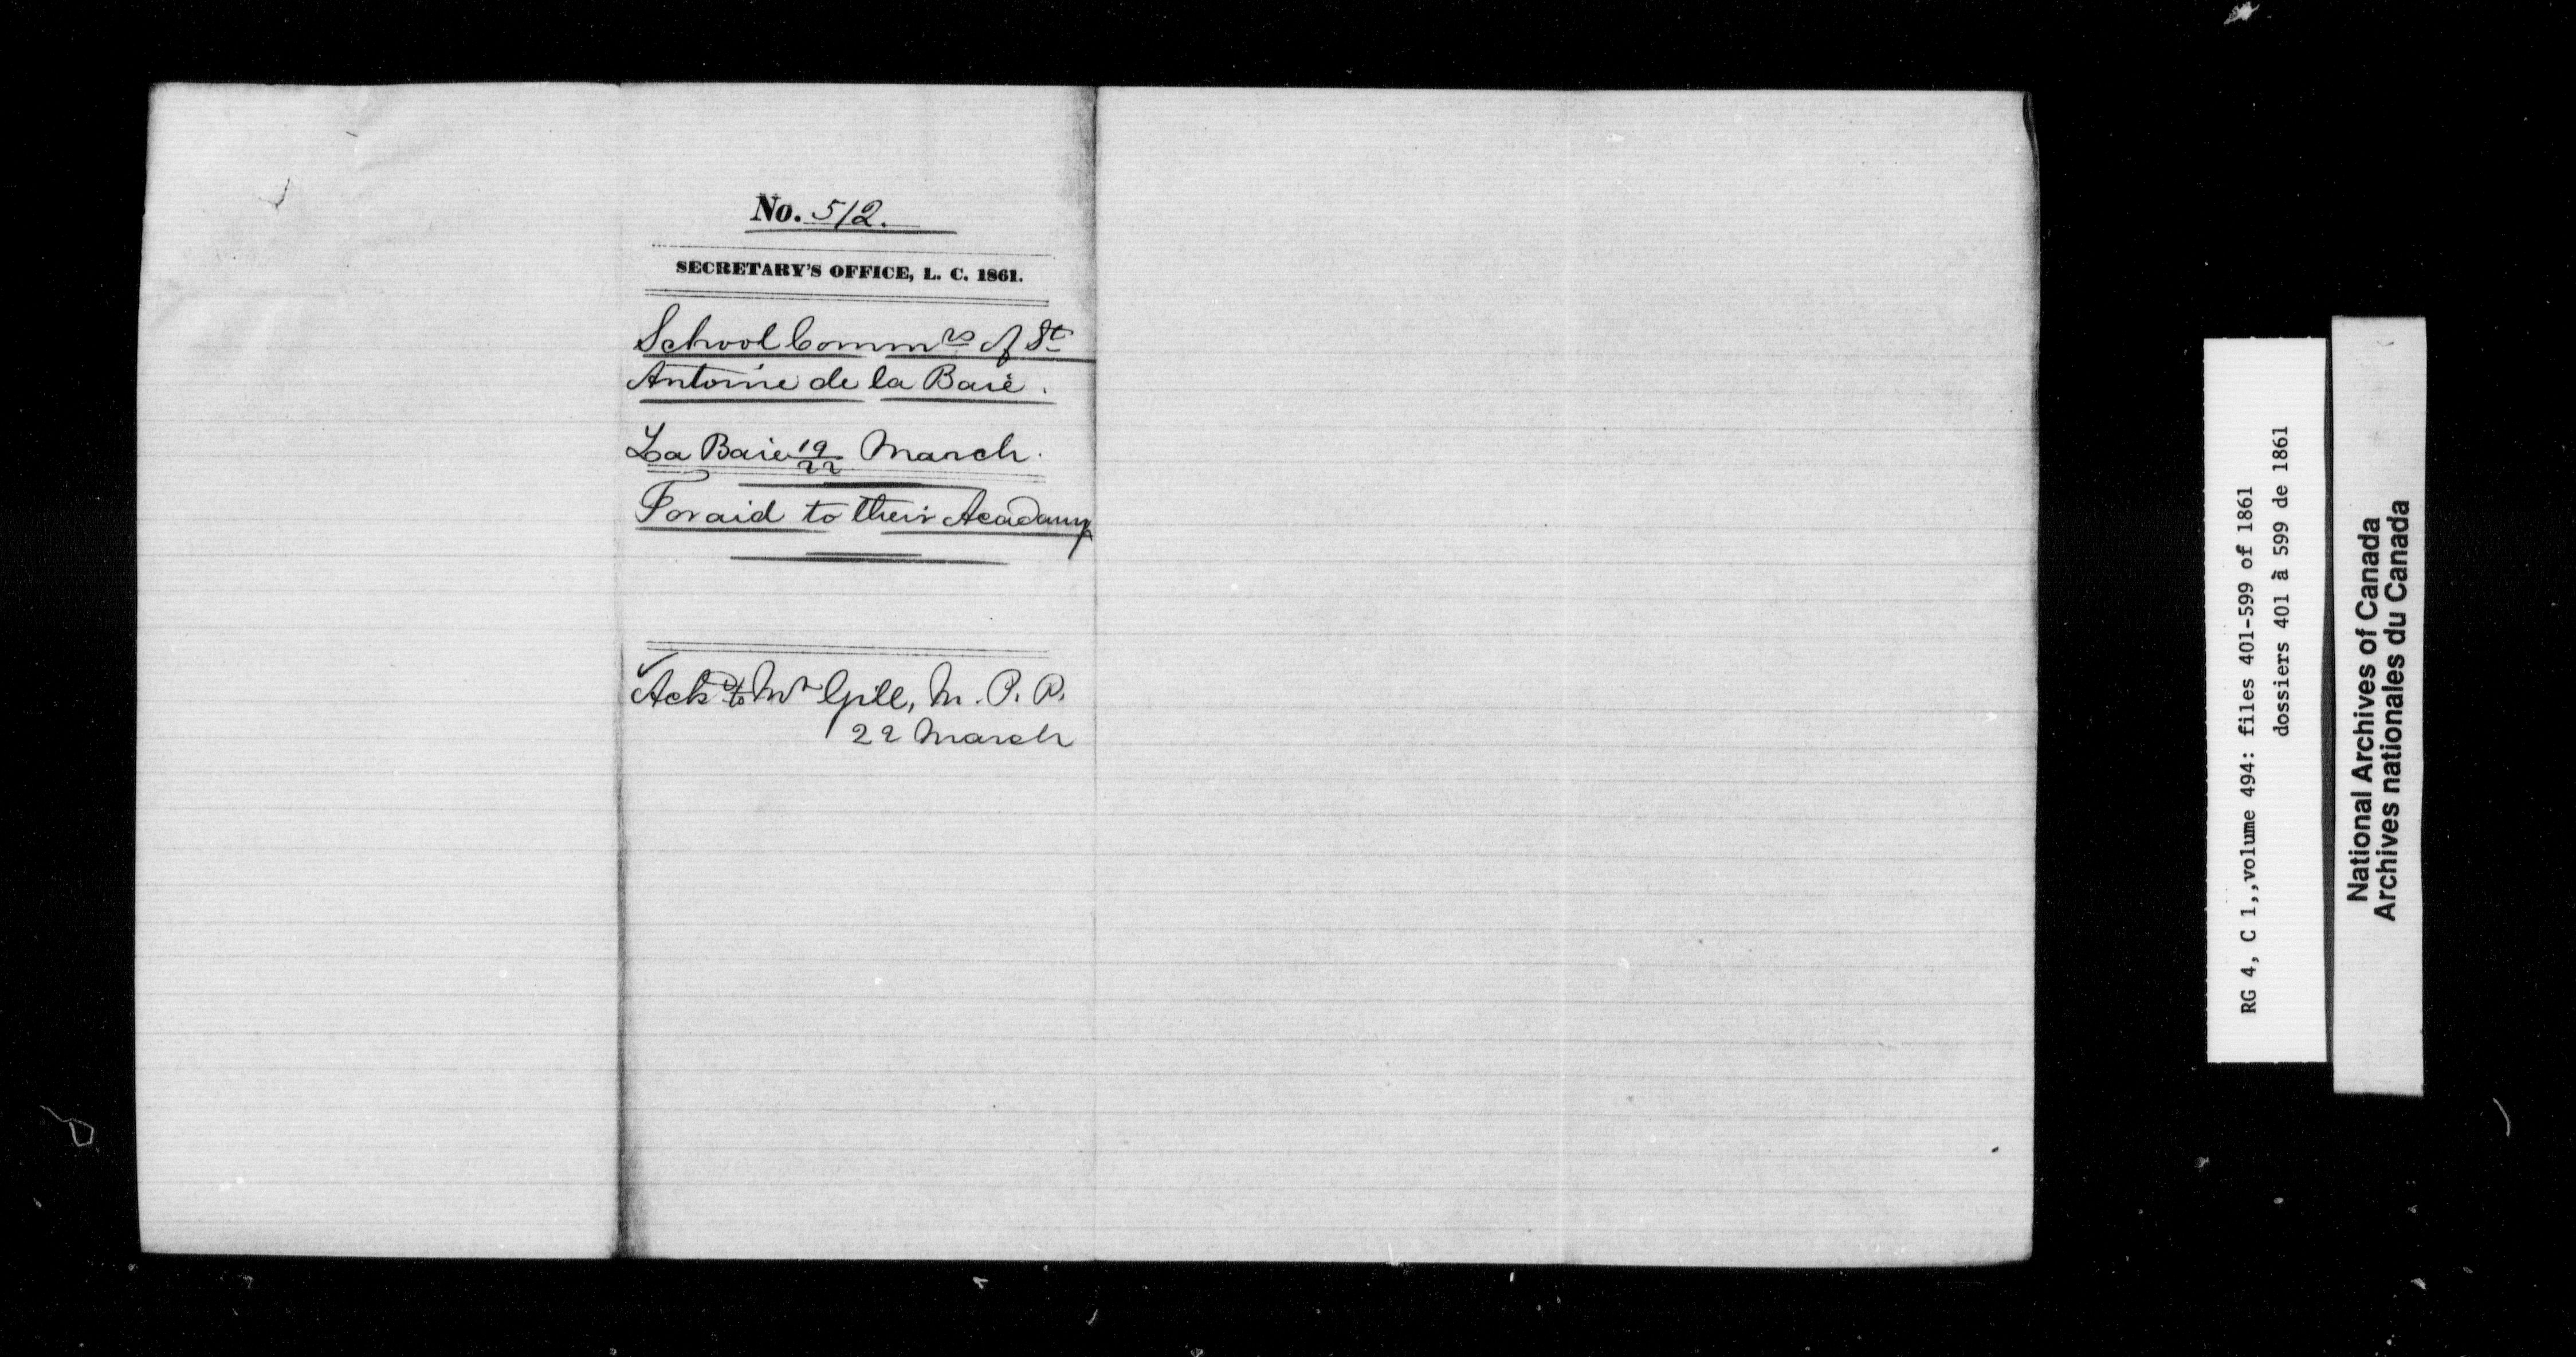 No. 512.
SECRETARY'S OFFICE, L. C. 1861.
School Commrs of St
Antoine de la Baie.
La Baie 19/22 March.
For aid to their Acadamy
Ackd to Mr Gill, M. P. P.
22 March
RG 4, C 1,,volume 494: files 401-599 of 1861
dossiers 401 à 599 de 1861
National Archives of Canada
Archives nationales du Canada